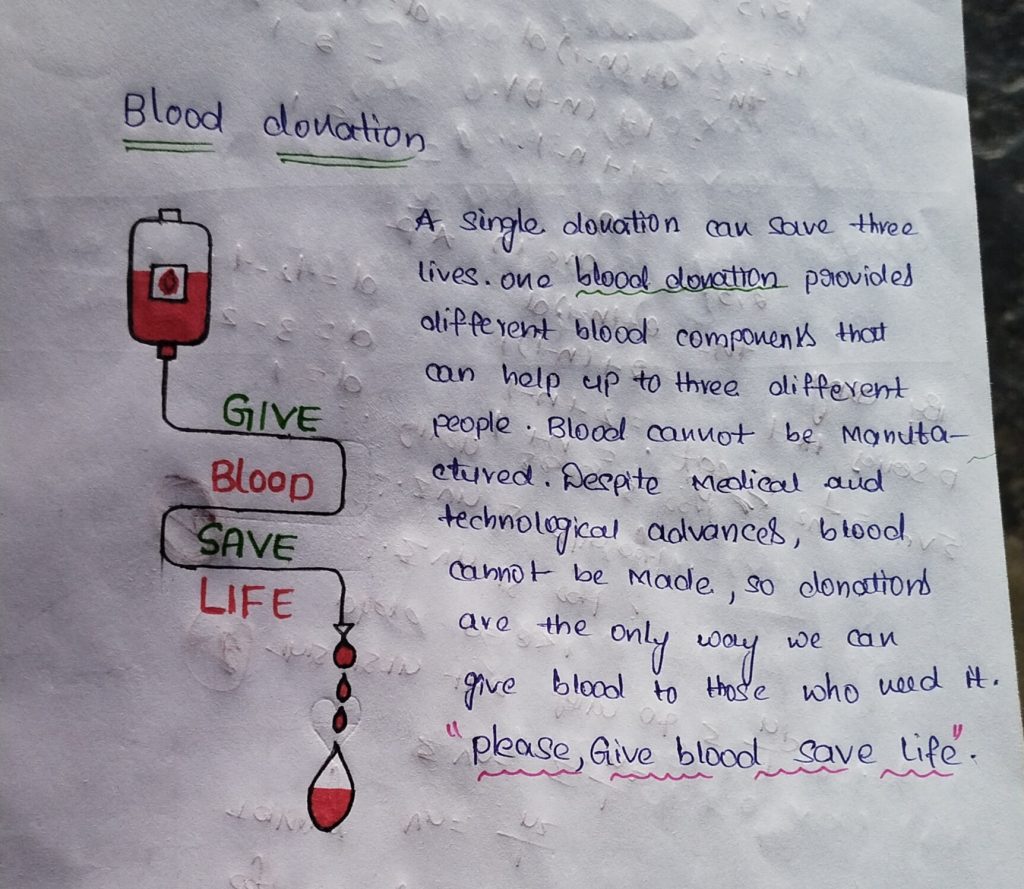 Blood donation
A single donation can save three
lives. one blood donation provides
different blood components that
can help up to three different
people. Blood cannot be Manufa-
ctured. Despite Medical and
technological advances, blood
cannot be made, so donations
are the only way we can
give blood to those who need it.
"please, Give blood save life".
GIVE
BlooD
SAVE
LIFE